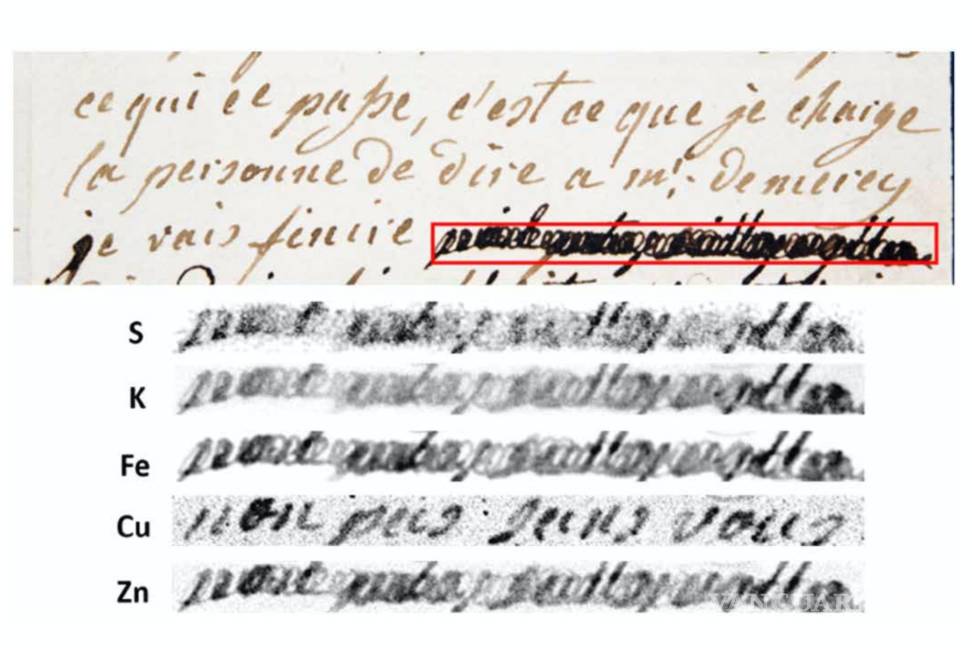 ce qui ce paſse, c'est ce que je charge
la personne de dire a mr: de mercy
je vais finire
S
K
Fe
Cu non pas sans vous
Zn
VANGUAR